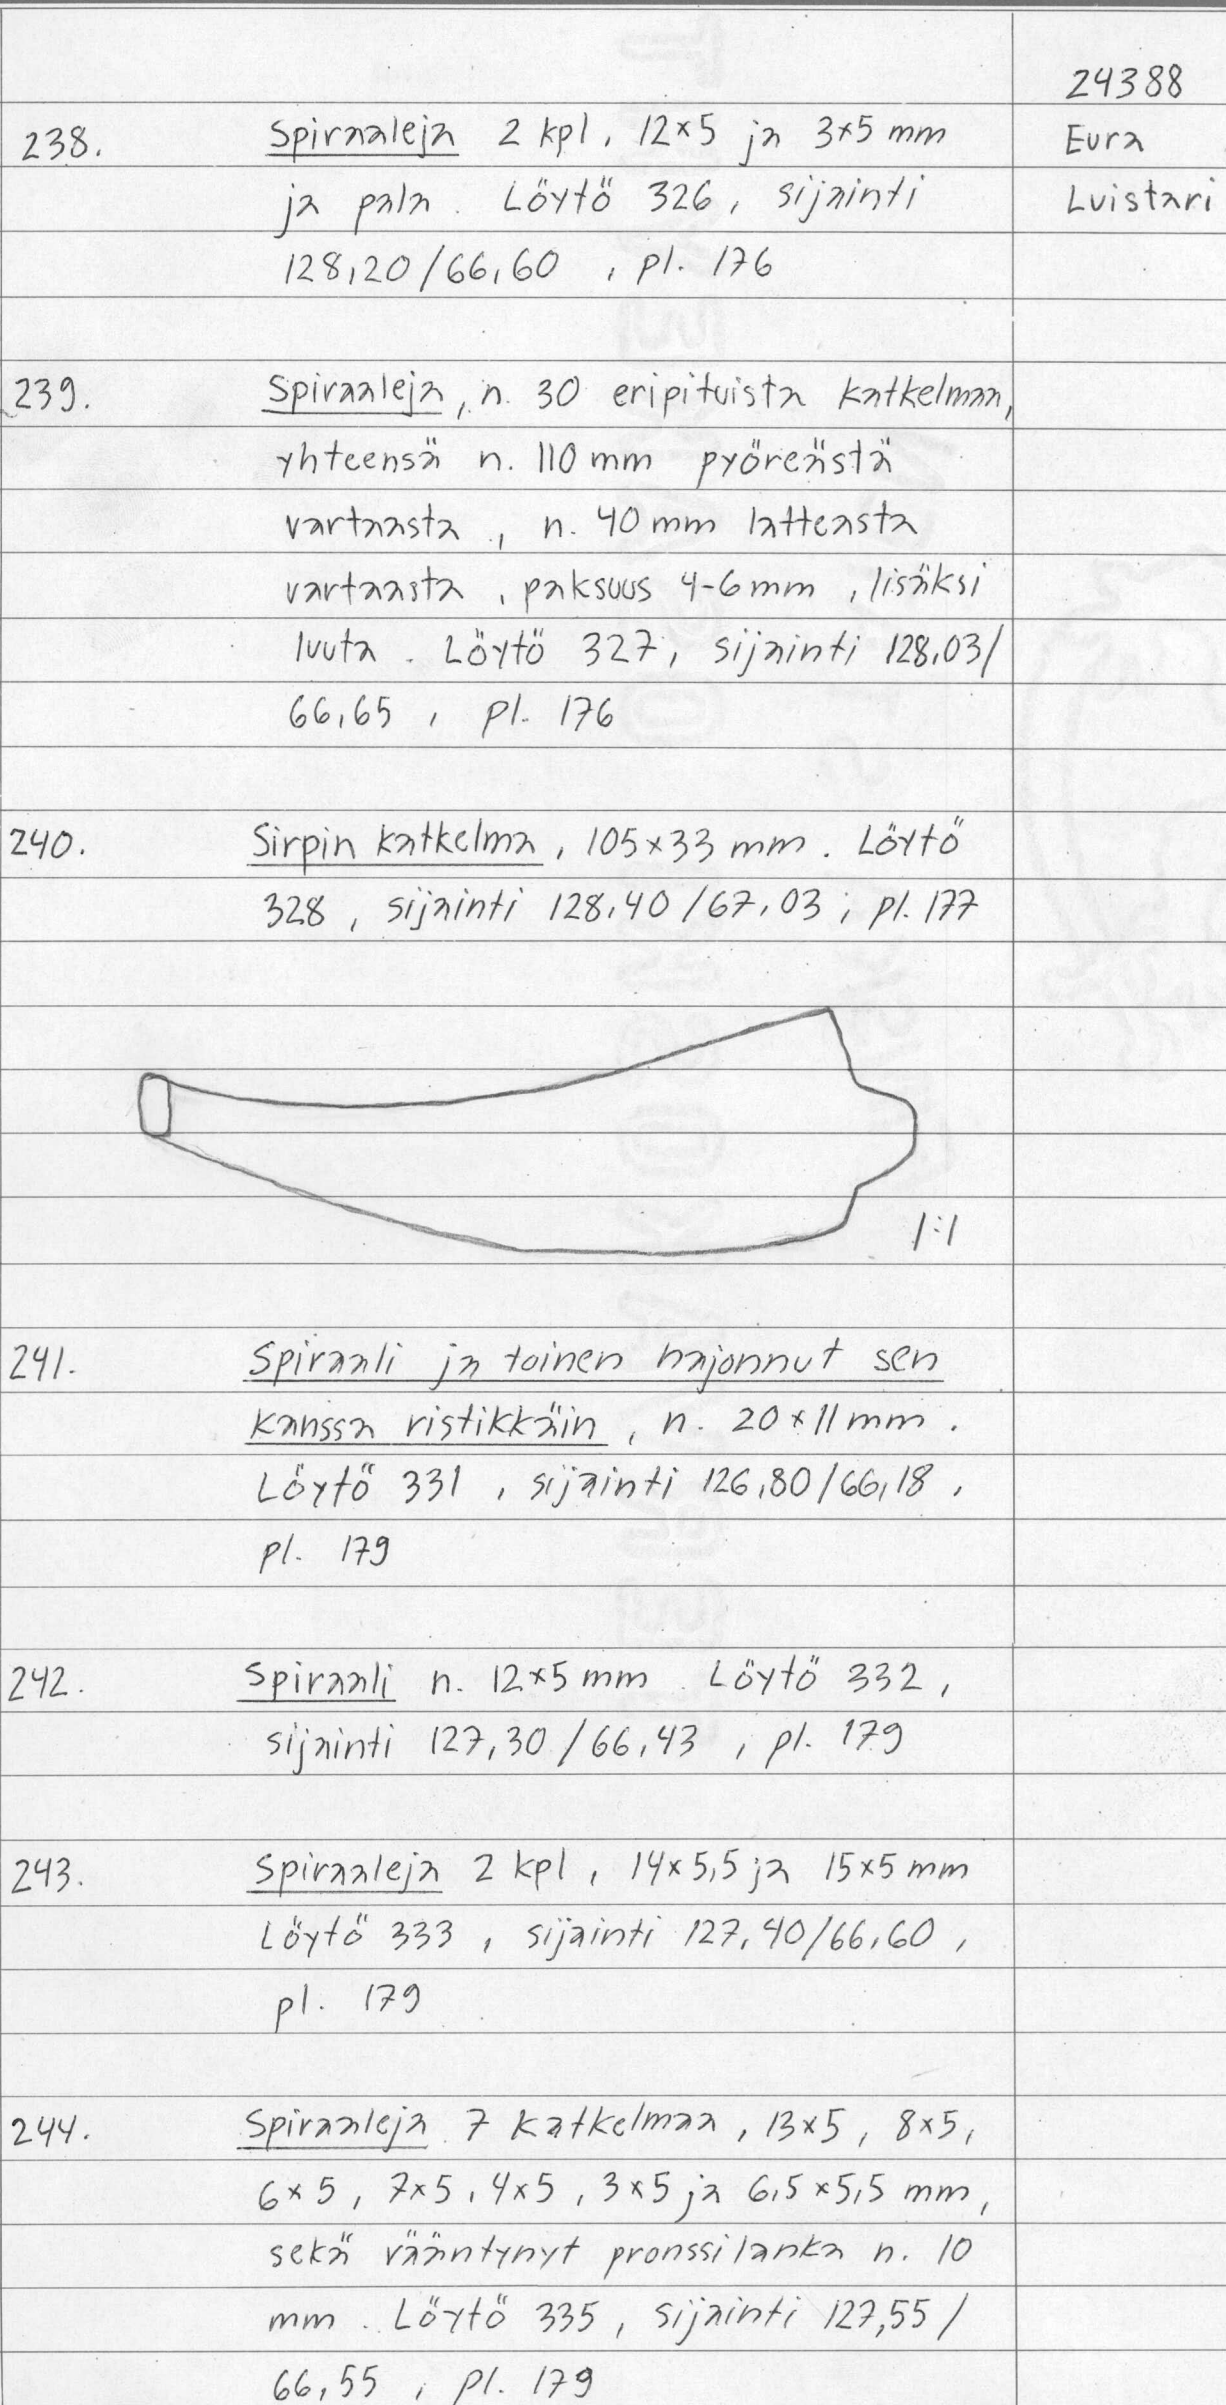 24388
238. Spiraaleja 2 kpl, 12×5 ja 3×5 mm Eura
ja pala. Löytö 326, sijainti Luistari
128,20/66,60, pl. 176
239. Spiraaleja, n. 30 eripituista katkelmaa,
yhteensä n. 110 mm pyöreästä
vartaasta, n. 40 mm latteasta
vartaasta, paksuus 4-6 mm, lisäksi
luuta. Löytö 327, sijainti 128,03/
66,65, pl. 176
240. Sirpin katkelma, 105×33 mm. Löytö
328, sijainti 128,40/67,03, pl. 177
1:1
241. Spiraali ja toinen hajonnut sen
kanssa ristikkäin, n. 20×11 mm.
Löytö 331, sijainti 126,80/66,18,
pl. 179
242. Spiraali n. 12×5 mm. Löytö 332,
sijainti 127,30/66,43, pl. 179
243. Spiraaleja 2 kpl, 14×5,5 ja 15×5 mm
Löytö 333, sijainti 127,40/66,60,
pl. 179
244. Spiraaleja 7 katkelmaa, 13×5, 8×5,
6×5, 7×5, 4×5, 3×5 ja 6,5×5,5 mm,
sekä vääntynyt pronssilanka n. 10
mm. Löytö 335, sijainti 127,55/
66,55, pl. 179